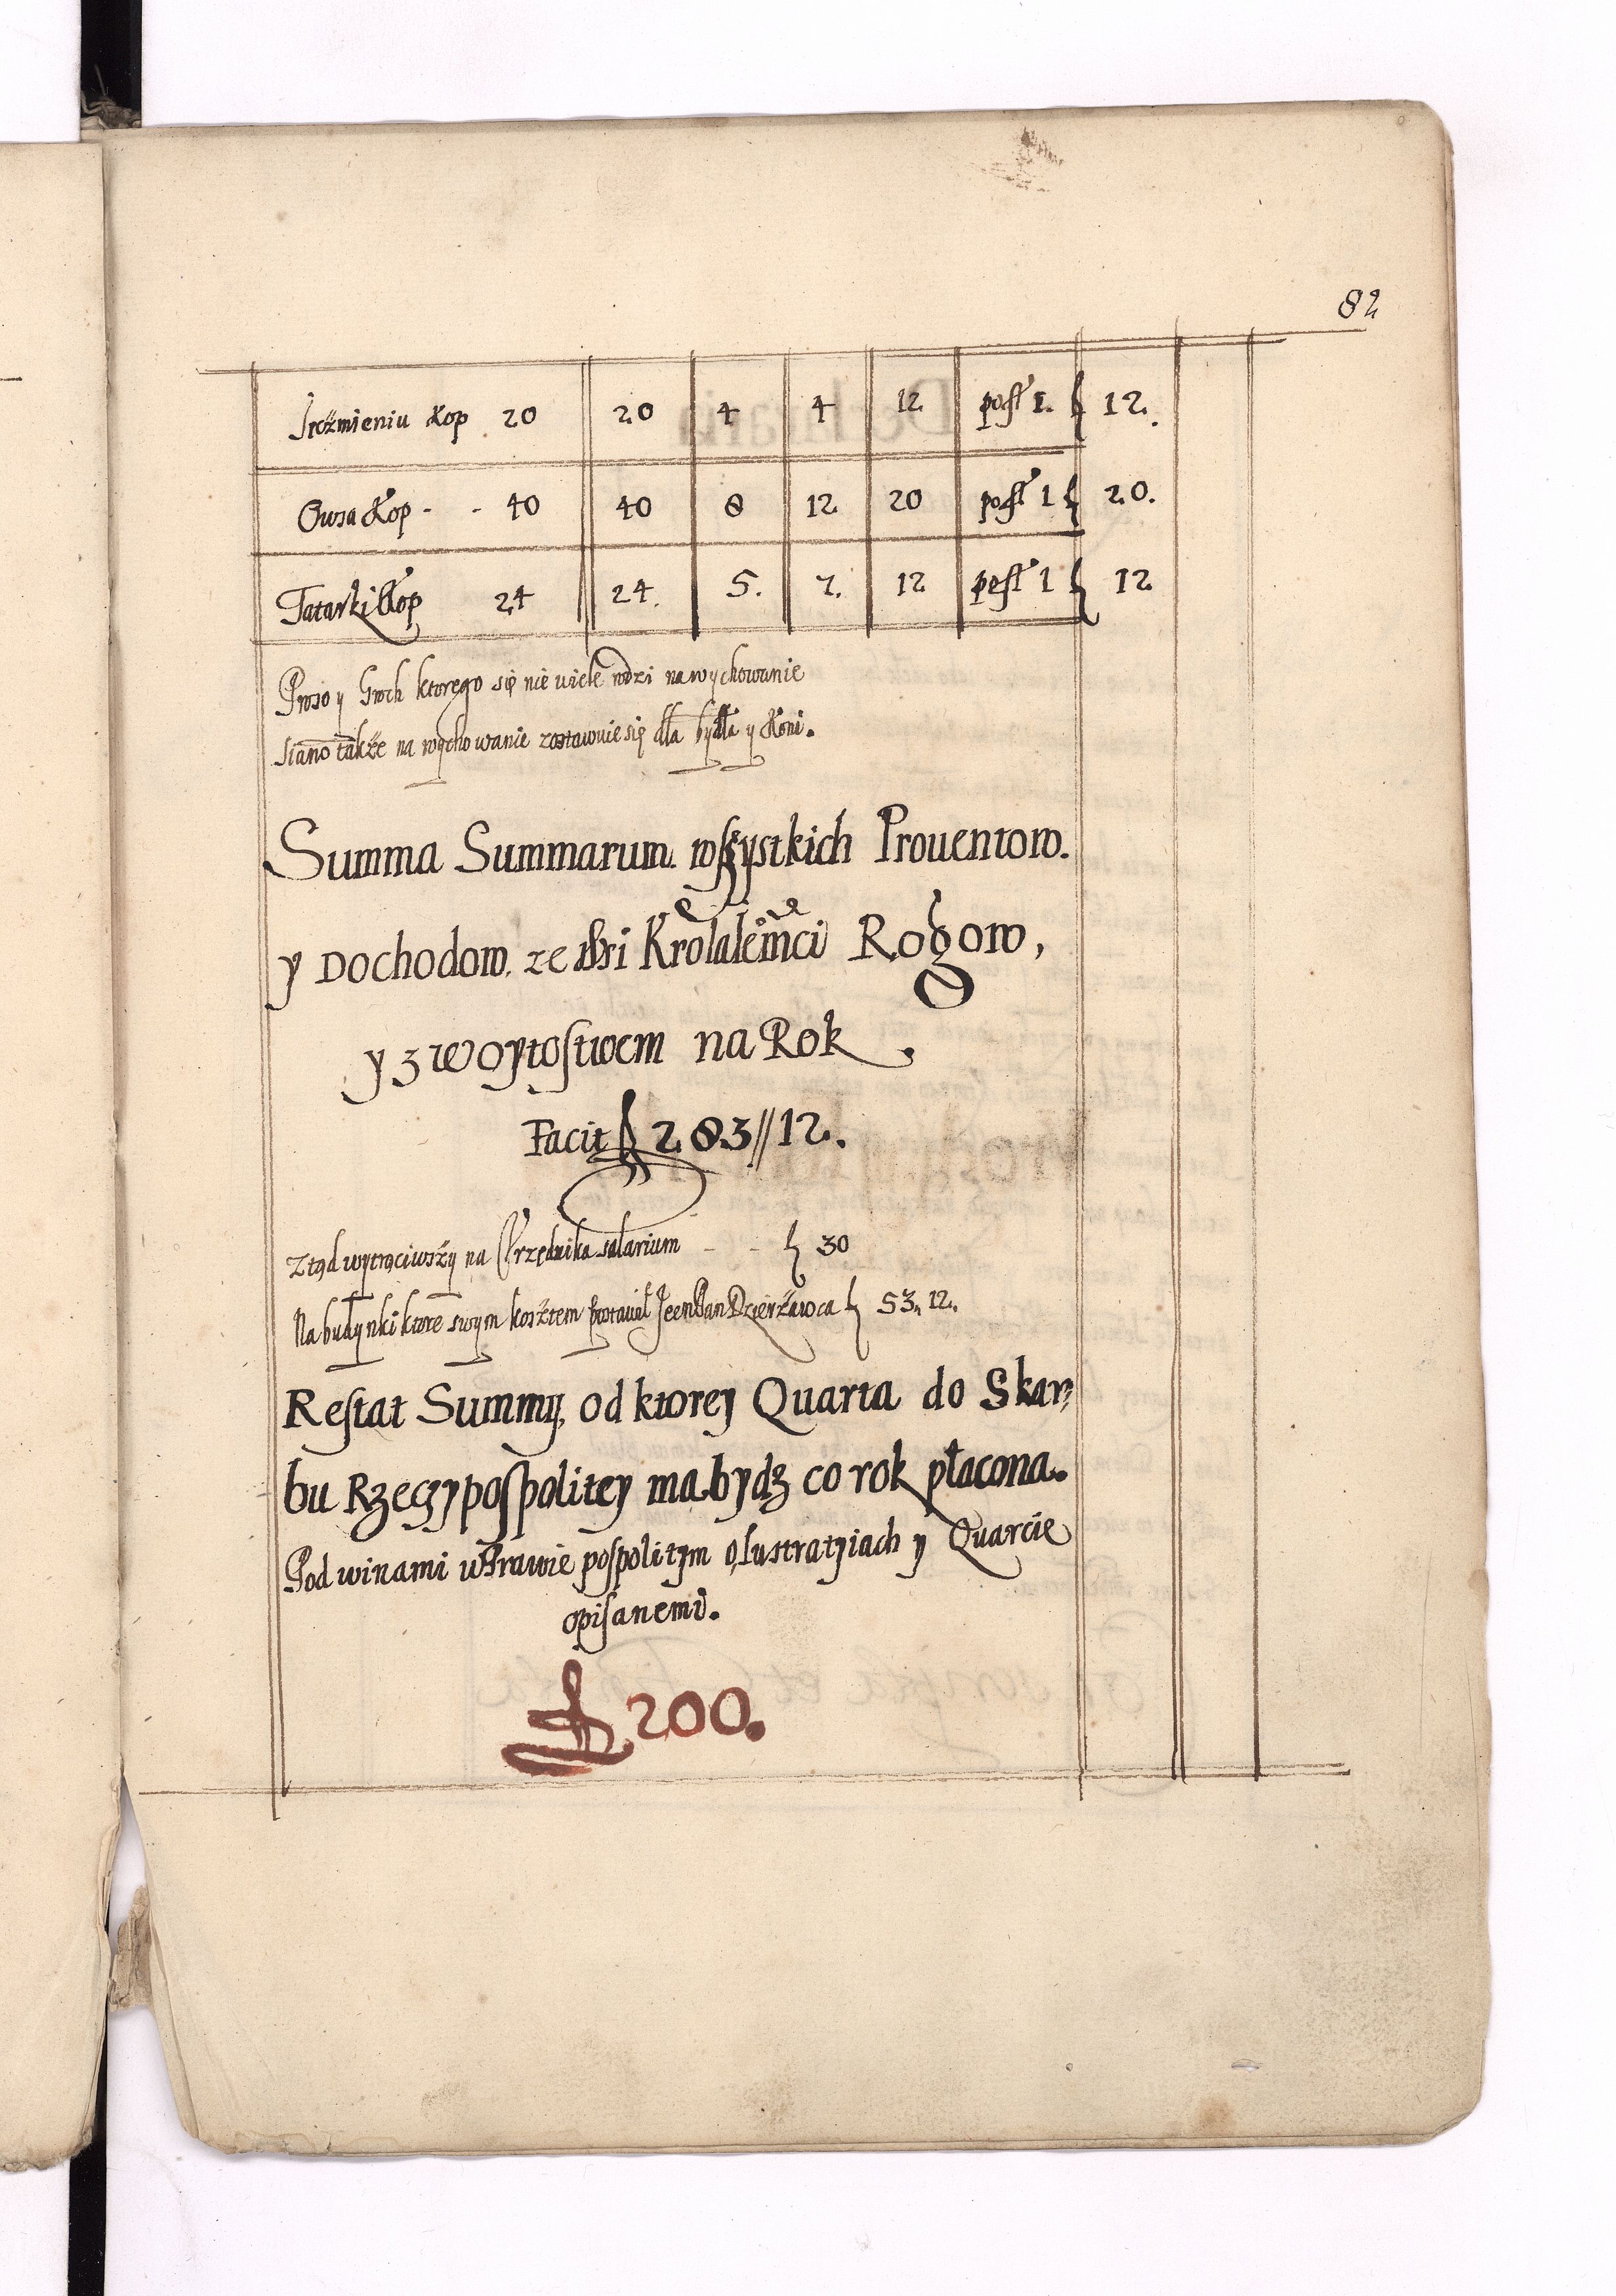 82
Jęczmieniu Kop 20 20 4 4 12 post 1. f 12.
Owsa Kop - - 40 40 8 12 20 post 1 f 20.
Tatarki Kop 24 24. 5. 7. 12 post 1 f 12
Proso y Groch ktorego się nie wiele rodzi na wychowanie
siano także na wychowanie zostawuie się dla bydła y Koni.
Summa Summarum wszystkich Prouentow.
y Dochodow. ze wsi Rogow,
y z Woytostwem na Rok.
Facit f 283//12.
Ztąd wytrąciwszy na Vrzędnika salarium - - f 30
Na budynki ktore swym kosztem postawił Pan Dzierżawca f 53. 12.
Restat Summy, od ktorey Quarta do Skar=
bu Rzeczypospolitey ma bydz co rok płacona.
Pod winami w Prawie pospolitym o Lustratyiach y Quarcie
opisanemi.
f 200.